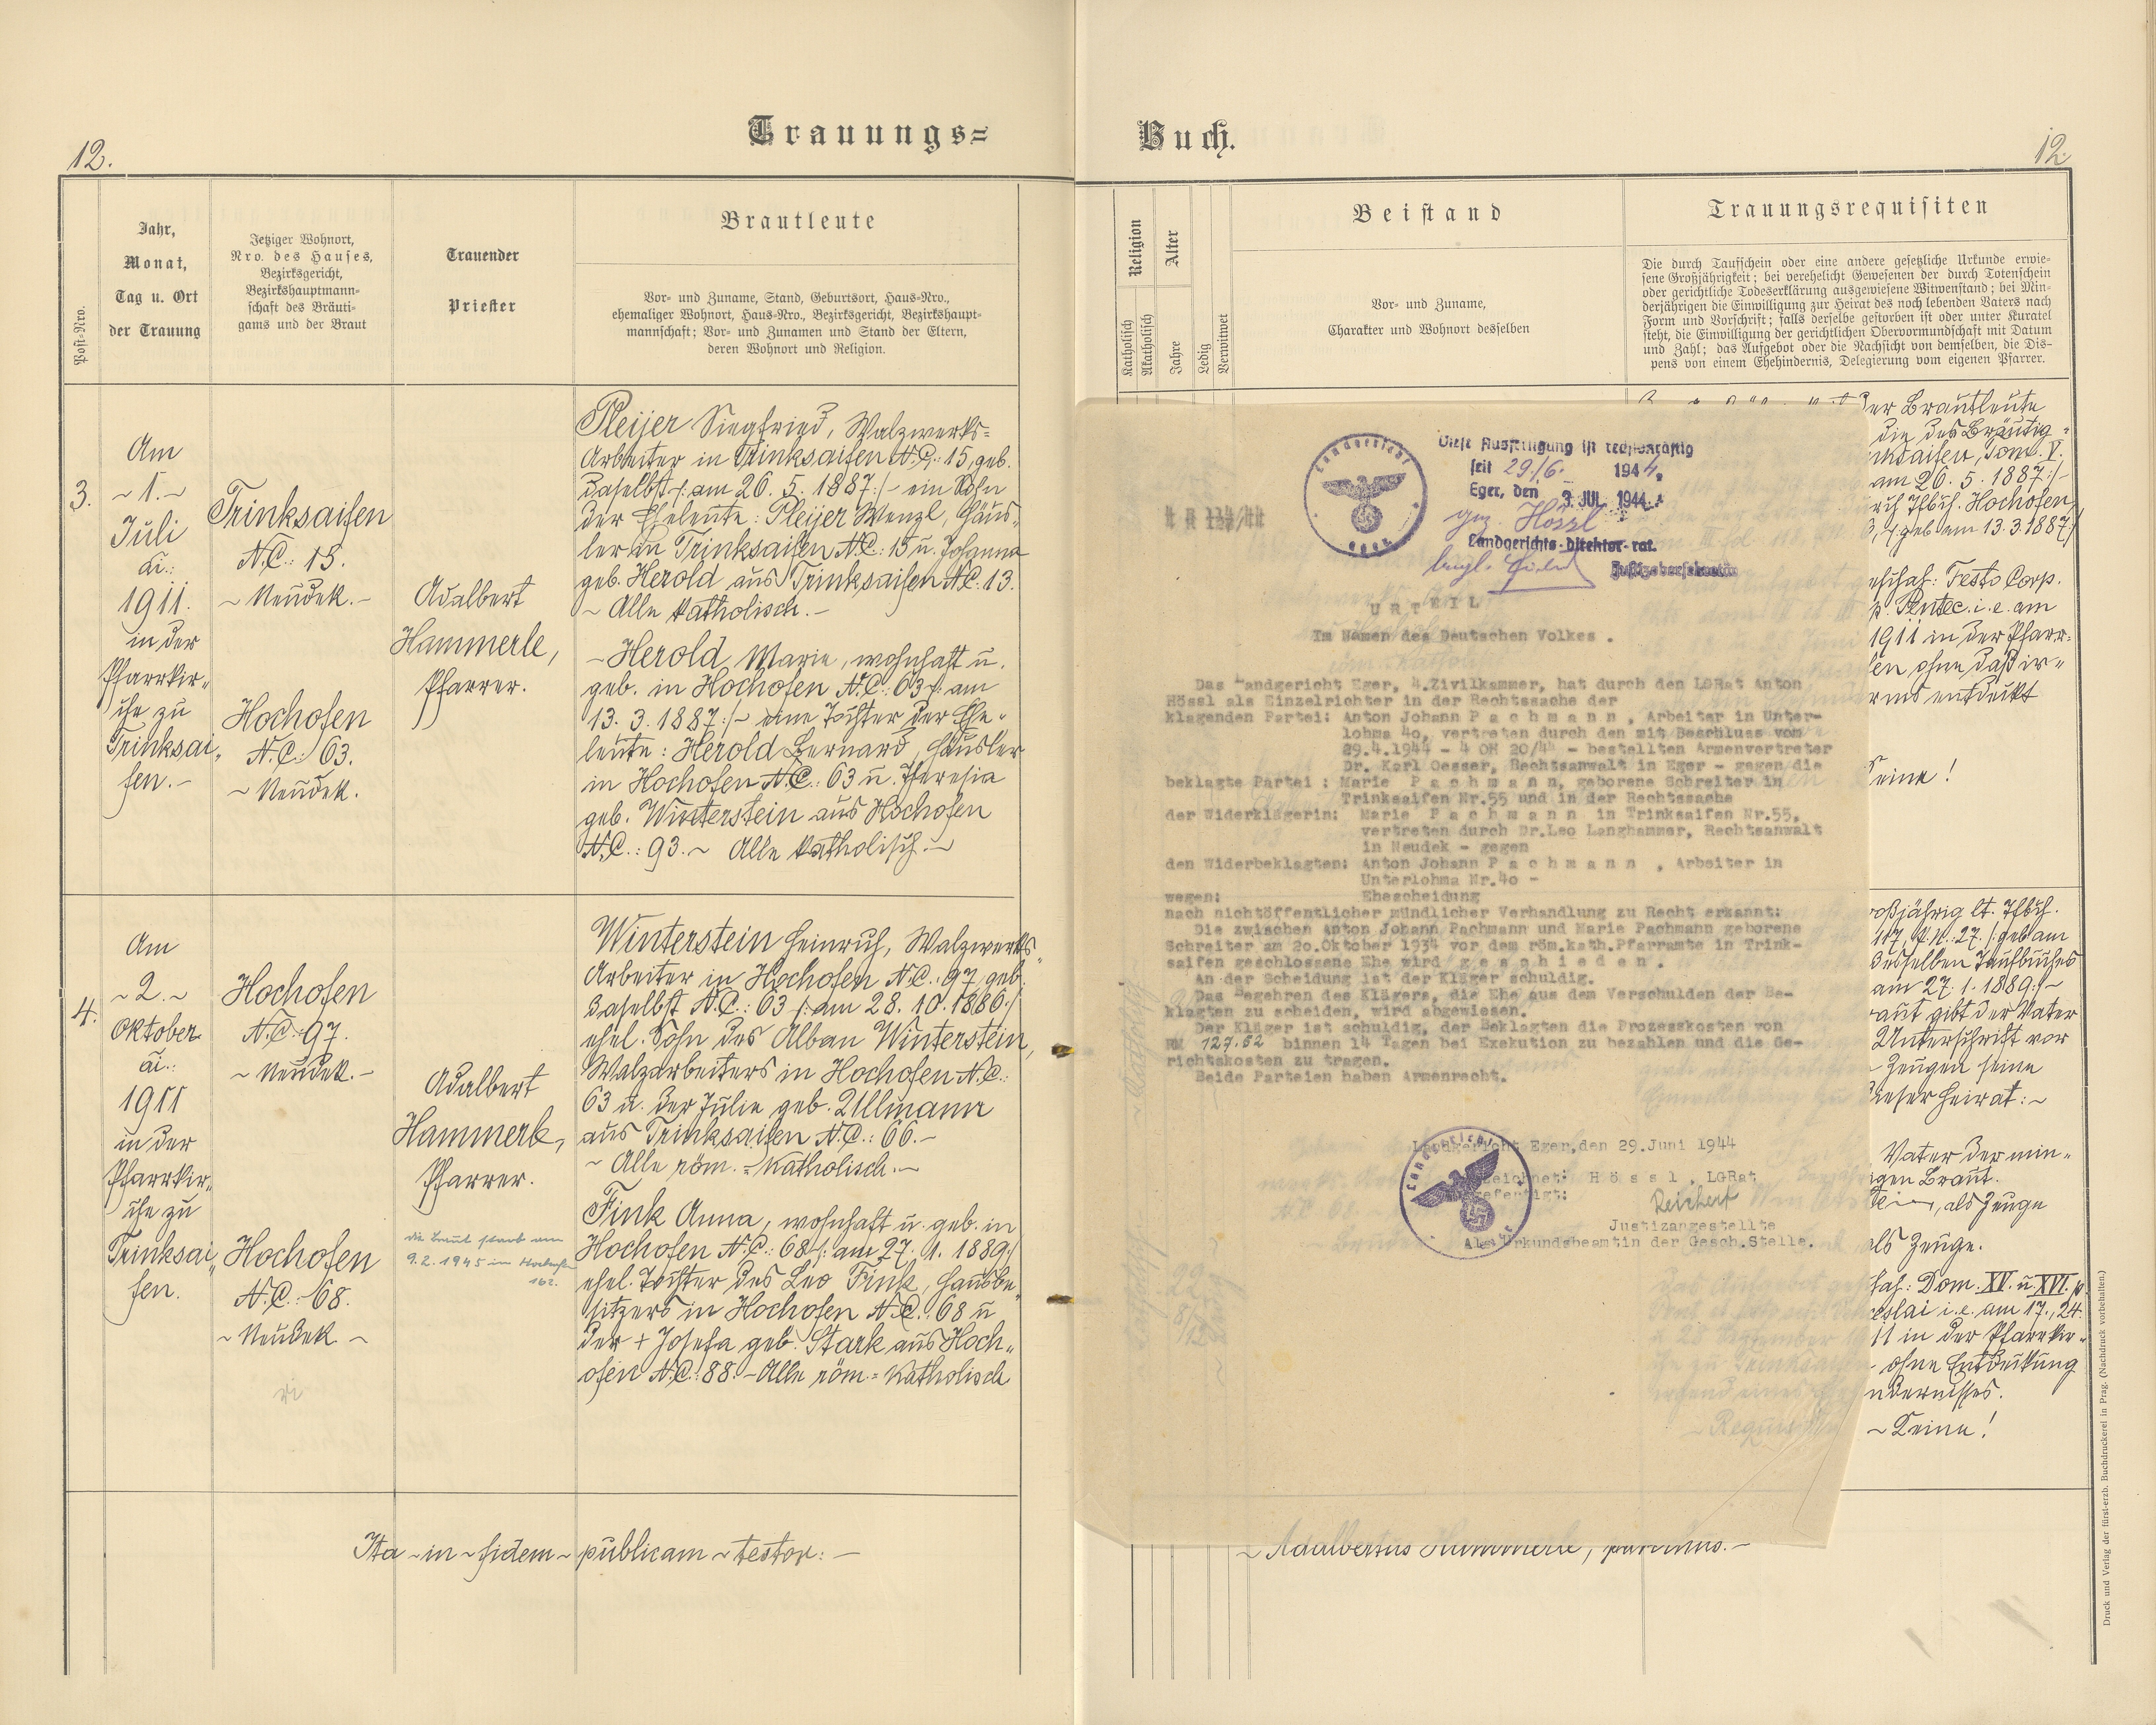 12.
Trauungs=
Post-Nro.
Jahr,
Monat,
Tag u. Ort
der Trauung
Jetziger Wohnort,
Nro. des Hauses,
Bezirksgericht,
Bezirkshauptmann-
schaft des Bräuti-
gams und der Braut
Trauender
Priester
Brautleute
Vor- und Zuname, Stand, Geburtsort, Haus-Nro.,
ehemaliger Wohnort, Haus-Nro., Bezirksgericht, Bezirkshaupt-
mannschaft; Vor- und Zunamen und Stand der Eltern,
deren Wohnort und Religion.
3.
Am
~ 1. ~
Juli
ai.:
1911.
in der
Pfarrkir„
che zu
Trinksai„
fen. –
Trinksaifen
N.C.: 15.
~ Neudek. –
Hochofen
N.C.: 63.
~ Neudek.
Adalbert
Hammerle,
Pfarrer.
Pleijer Siegfried, Walzwerks=
Arbeiter in Trinksaifen N.C.: 15, geb.
daselbst /: am 26. 5. 1887 :/ – ein Sohn
der Eheleute: Pleijer Wenzl, Häus„
ler in Trinksaifen N.C.: 15 u. Johanna
geb. Herold aus Trinksaifen N.C.: 13.
~ Alle katholisch. –
– Herold Marie, wohnhaft u.
geb. in Hochofen N.C.: 63 /: am
13. 3. 1887 :/ – eine Tochter der Ehe„
leute: Herold Bernard, Häusler
in Hochofen N.C.: 63 u. Theresia
geb. Winterstein aus Hochofen
N.C.: 93. ~ Alle katholisch. –
4.
Am
~ 2. ~
Oktober
ai.:
1911
in der
Pfarrkir„
che zu
Trinksai„
fen.
Hochofen
N.C.: 97.
~ Neudek. –
Hochofen
N.C.: 68.
~ Neudek ~
Adalbert
Hammerle,
Pfarrer.
die Braut starb am
9. 2. 1945 in Hochofen
162.
Winterstein Heinrich, Walzwerks„
Arbeiter in Hochofen N.C.: 97, geb.
daselbst N.C.: 63 /: am 28. 10. 1886 :/
ehel. Sohn des Alban Winterstein,
Walzarbeiters in Hochofen N.C.:
63 u. der Julie geb. Ullmann
aus Trinksaifen N.C.: 66. –
~ Alle röm. = katholisch. –
Fink Anna, wohnhaft u. geb. in
Hochofen N.C.: 68 /: am 27. 1. 1889 :/
ehel. Tochter des Leo Fink, Hausbe„
sitzers in Hochofen N.C.: 68 u
der + Josefa geb. Stark aus Hoch„
ofen N.C.: 88. – Alle röm. = katholisch
Ita ~ in ~ fidem ~ publicam ~ testor: –
Buch.
12
Religion
Katholisch
Akatholisch
Alter
Jahre
Ledig
Verwitwet
Beistand
Vor- und Zuname,
Charakter und Wohnort desselben
Trauungsrequisiten
Die durch Taufschein oder eine andere gesetzliche Urkunde erwie-
sene Großjährigkeit; bei verehelicht Gewesenen der durch Totenschein
oder gerichtliche Todeserklärung ausgewiesene Witwenstand; bei Min-
derjährigen die Einwilligung zur Heirat des noch lebenden Vaters nach
Form und Vorschrift; falls derselbe gestorben ist oder unter Kuratel
steht, die Einwilligung der gerichtlichen Obervormundschaft mit Datum
und Zahl; das Aufgebot oder die Nachsicht von demselben, die Dis-
pens von einem Ehehindernis, Delegierung vom eigenen Pfarrer.
Landgericht
Eger
Diese Ausfertigung ist rechtskräftig
seit 29./6. 1944.
Eger, den 3. JUL. 1944.
gez. Hössl
Landgerichts-direktor-rat.
URTEIL
Im Namen des Deutschen Volkes .
Das Landgericht Eger, 4.Zivilkammer, hat durch den LGRat Anton
Hössl als Einzelrichter in der Rechtssache der
klagenden Partei: Anton Johann P a c h m a n n , Arbeiter in Unter-
lohma 4o, vertreten durch den mit Beschluss vom
29.4.1944 - 4 OH 20/44 - bestellten Armenvertreter
Dr. Karl Oesser, Rechtsanwalt in Eger - gegen die
beklagte Partei : Marie P a c h m a n n, geborene Schreiter in
Trinksaifen Nr.55 und in der Rechtssache
der Widerklägerin: Marie P a c h m a n n in Trinksaifen Nr.55,
vertreten durch Dr.Leo Langhammer, Rechtsanwalt
in Neudek - gegen
den Widerbeklagten: Anton Johann P a c h m a n n , Arbeiter in
Unterlohma Nr.4o -
wegen: Ehescheidung
nach nichtöffentlicher mündlicher Verhandlung zu Recht erkannt:
Die zwischen Anton Johann Pachmann und Marie Pachmann geborene
Schreiter am 2o.Oktober 1934 vor dem röm.kath.Pfarramte in Trink-
saifen geschlossene Ehe wird g e s c h i e d e n .
An der Scheidung ist der Kläger schuldig.
Das Begehren des Klägers, die Ehe aus dem Verschulden der Be-
klagten zu scheiden, wird abgewiesen.
Der Kläger ist schuldig, der Beklagten die Prozesskosten von
RM 127.52 binnen 14 Tagen bei Exekution zu bezahlen und die Ge-
richtskosten zu tragen.
Beide Parteien haben Armenrecht.
Landgericht Eger,den 29.Juni 1944
H ö s s l , LGRat
Reichert
Justizangestellte
Als Urkundsbeamtin der Gesch.Stelle.
Landgericht
der Brautleute
die des Bräutig=
Tom. V.
am 26. 5. 1887 :/ –
Hochofen
geb. am 13. 3 1887 :/
Festo Corp.
p. Pentec. i. e. am
1911 in der Pfarr=
en ohne daß ir=
entdeckt
Keine!
lt. Tfbch.
117, P.N.: 27. /: geb. am
desselben Taufbuches
am 27. 1. 1889 :/ ~
gibt der Vater
Unterschrift vor
Zeugen seine
dieser Heirat: ~
Vater der min„
Braut.
, als Zeuge
als Zeuge.
Dom. XV. u XVI. p.
i. e. am 17., 24.
in der Pfarrkir„
ohne Entdeckung
~ Keine!
~ Adalbertus Hammerle, parochus. –
Druck und Verlag der fürst-erzb. Buchdruckerei in Prag. (Nachdruck vorbehalten.)